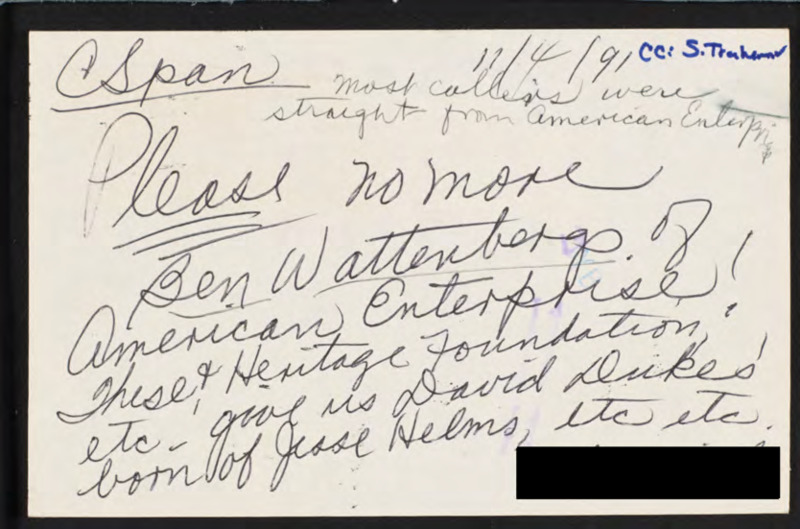 C Span 11/4/91 cc: S.
most callers were
straight from American Enterprise
Please no more
Ben Wattenbergs of
American Enterprise!
These & Heritage Foundation,
etc - give us David Dukes!
born of Jesse Helms, etc etc.